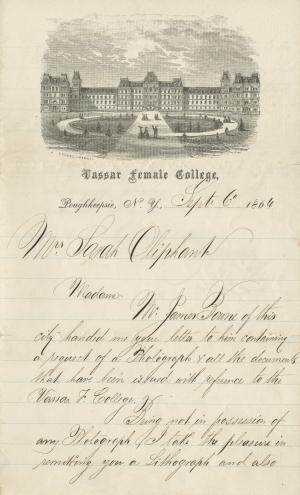 Vassar Female College,
Poughkeepsie, N. Y. Septr 6th 1864
Mrs Sarah Oliphant
Madam
Mr James Bowne of this
city handed me your letter to him containing
a request of a Photograph & all the documents
that have been issued with refrence to the
Vassar F. College.
Being not in possession of
any Photograph I take the pleasure in
remitting you a Lithograph and also